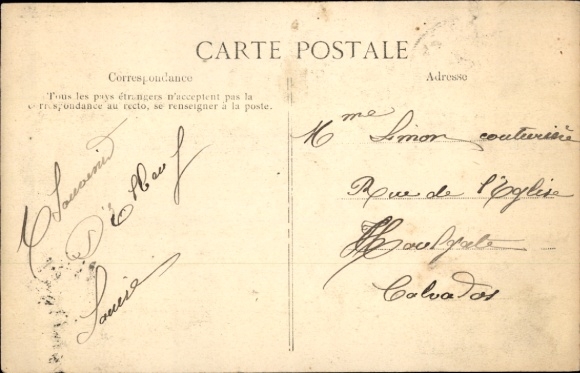 CARTE POSTALE
Correspondance
Tous les pays étrangers n'acceptent pas la
correspondance au recto, se renseigner à la poste.
Souvenir
Louise
Adresse
Mme Simon couturière
Rue de l'Eglise
Houlgate
Calvados